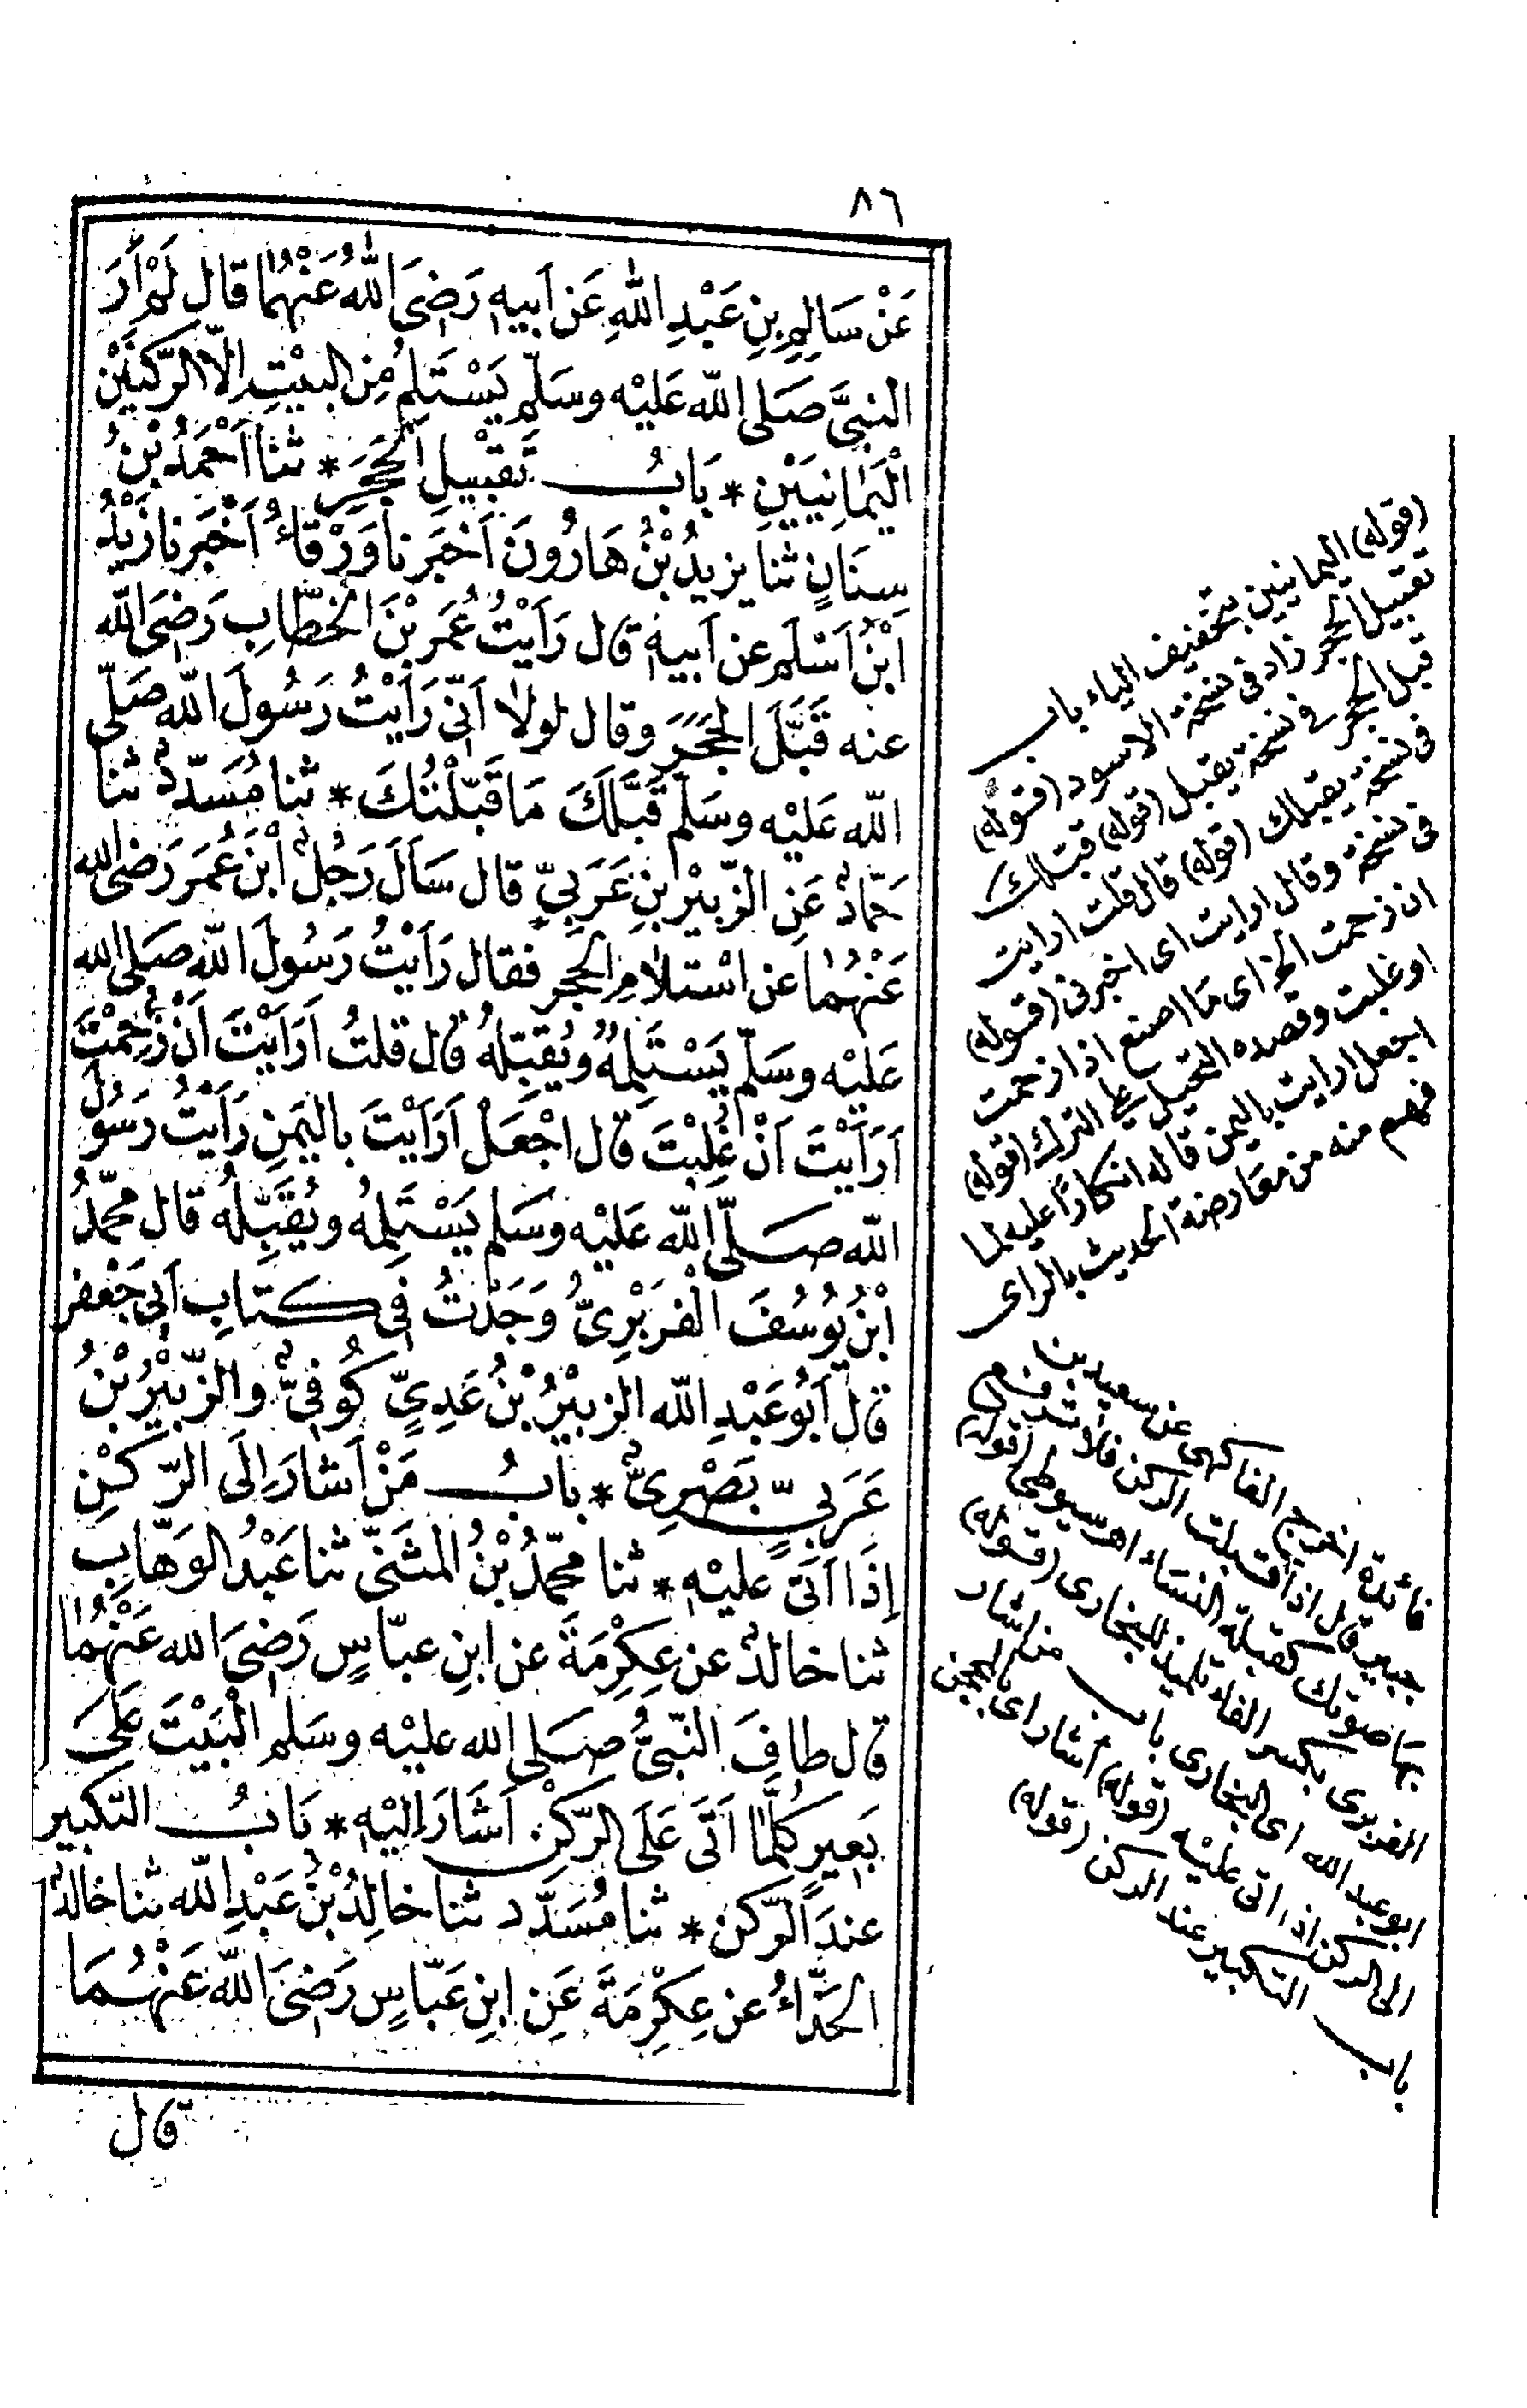 ٨٦
عَنْ سَالِمِ بنِ عَبْدِ اللهِ عَن اَبيهِ رَضِىَ اللهُ عَنْهُمَا قال لَمْ اَرَ
النبىَّ صَلى الله عَليْه وسَلّم يَسْتَلِمُ مِن البيْتِ الّا الرّكنَيْن
الْيَمَانِيَيْنِ * بَابُ تَقبْيلِ الحَجَرِ * ثنا اَحْمَدُ بْنُ
سِنَانٍ ثنا يزيدُ بْنُ هَارُونَ اَخبَرنا وَرْقاءُ اَخْبَرنا زَيْدُ
ابْنُ اَسْلَم عن اَبيهِ قال رَاَيْتُ عُمَر بْنَ الخطّابِ رَضىَ الله
عنه قَبَّلَ الحَجَرَ وقال لولا اَنّى رَاَيْتُ رَسُولَ الله صَلّى
الله عَليْه وسَلّم قَبَّلَكَ مَا قَبّلْتُكَ * ثنا مُسَدّدٌ ثنا
حَمّادٌ عَن الزّبيْر بنِ عَرَبىٍّ قال سَاَلَ رَجُلٌ ابْنَ عُمَرَ رَضى الله
عَنْهُمَا عن اسْتلامِ الحَجَر فقال رَاَيْتُ رَسُولَ الله صَلى الله
عَليْه وسَلّم يَسْتَلِمُهُ ويُقبّلهُ قال قلتُ اَرَاَيْتَ اَنْ زُحِمْتَ
اَرَاَيْتَ اَنْ غُلِبْتَ قال اجْعَلْ اَرَاَيْتَ باليَمَنِ رَاَيْتُ رَسُولَ
الله صَلّى الله عَليْه وسَلم يَسْتَلِمُهُ ويُقَبِّلهُ قال محمّدُ
ابْنُ يُوسُفَ الْفَربْرِىُّ وَجَدْتُ فى كتابِ اَبى جَعْفر
قال اَبُو عَبْدِ الله الزبيْرُ بْنُ عَدِىٍّ كُوفىٌّ والزّبيْرُ بْنُ
عَرَبىٍّ بَصْرِىٌّ * بابُ مَنْ اَشارَ اِلَى الرّكنِ
اِذَا اَتَى عليْهِ * ثنا محمّدُ بْنُ المثَنّى ثنا عَبْدُ الوَهّابِ
ثنا خالدٌ عن عِكِرْمَةَ عن ابنِ عبّاسٍ رَضِىَ الله عَنْهُمَا
قال طافَ النّبىُّ صَلى الله عليْه وسَلم الْبَيْتَ عَلىَ
بَعِيرٍ كُلّمَا اَتَى عَلَى الرّكنِ اَشَارَ اِليْهِ * بَابُ التكبير
عندَ الرّكن * ثنا مُسَدّد ثنا خالِدُ بْنُ عَبْدِ الله ثنا خالدٌ
الحَذّاءُ عن عِكِرْمَةَ عَنِ ابنِ عَبّاسٍ رَضىَ الله عَنْهُمَا
قال
(قوله) اليمانيين بتخفيف الياء باب
تقبيل الحجر زاد فى نسخة الاسود (قوله)
قبل الحجر فى نسخة يقبل (قوله) قبلك
فى نسخة يقبلك (قوله) قال قلت ارايت
فى نسخة وقال ارايت اى اخبرنى (قوله)
ان زحمت الخ اى ما اصنع اذا زحمت
او غلبت وقصده التحيل على الترك (قوله)
اجعل ارايت باليمن قاله انكارًا عليه لما
فهم منه من معارضة الحديث بالراى
فائدة اخرج الفاكهى عن سعيد بن
جبير قال اذا قبلت الركن فلا ترفع
بها صوتك كقبلة النساء اهـ سيوطى (قوله)
الفربرى بكسر الفاء تلميذ البخارى (قوله)
ابو عبد الله اى البخارى باب من اشار
الى الركن اذا اتى عليه (قوله) اشار اى بالمحجن
باب التكبير عند الركن (قوله)